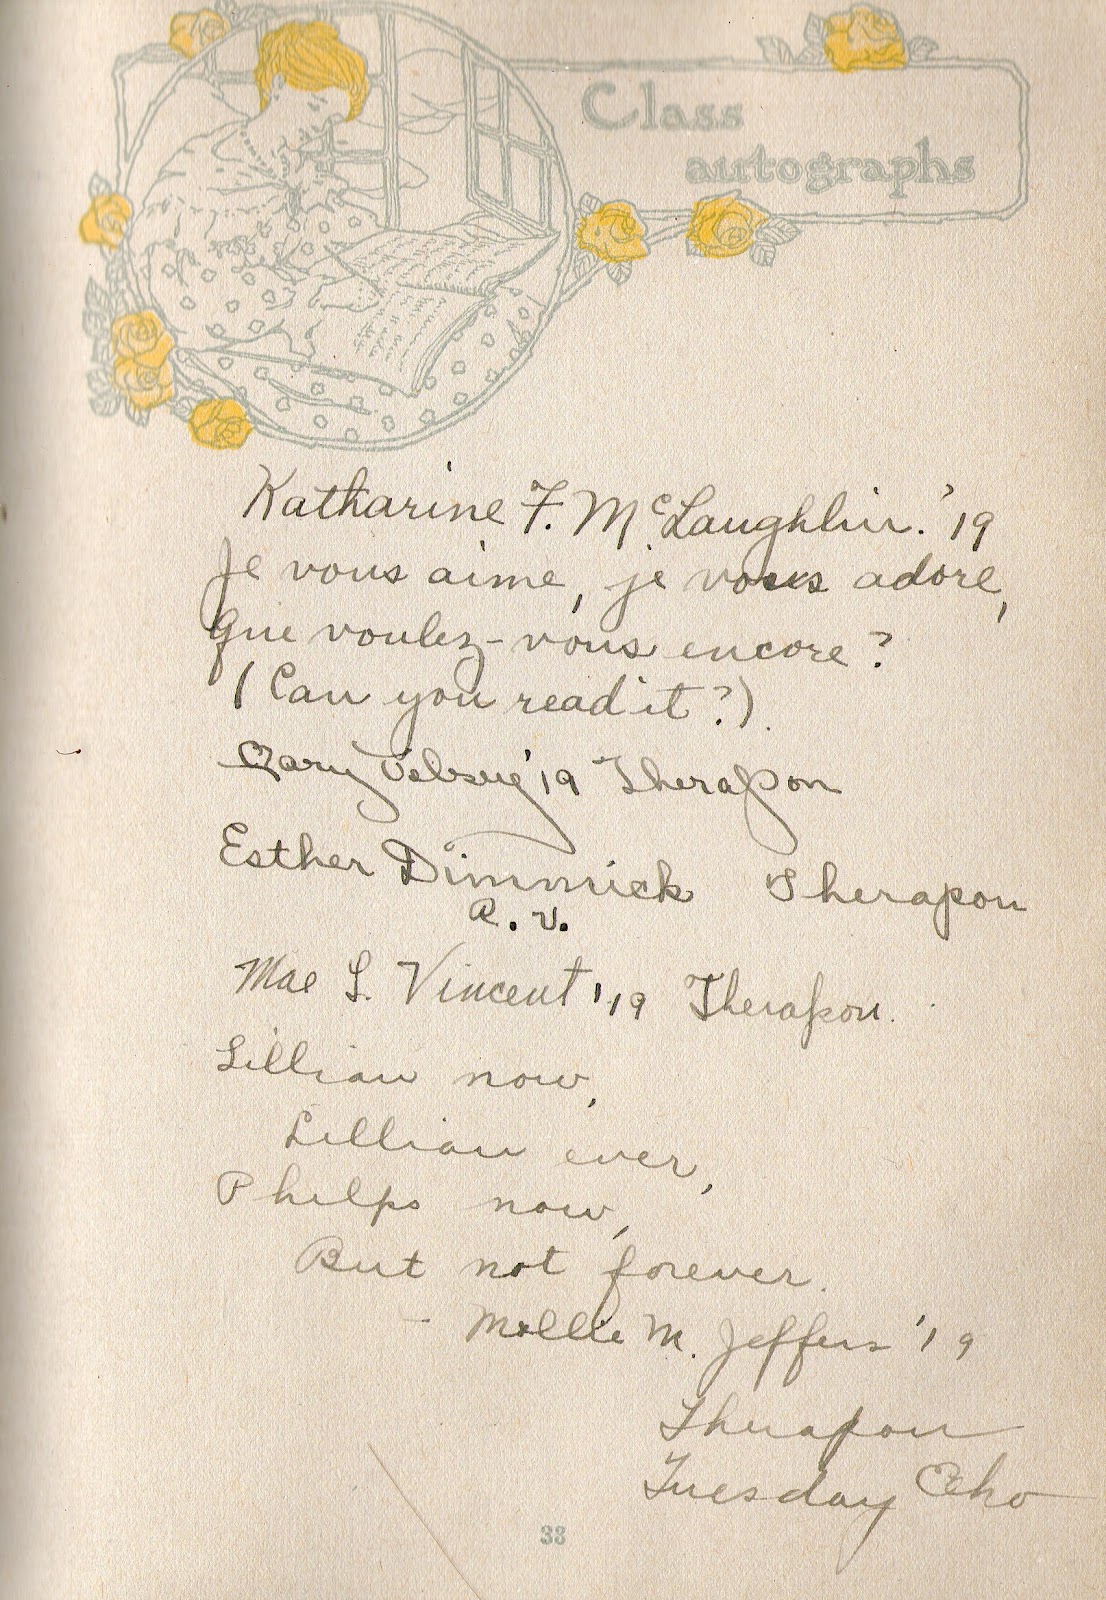 Class
autographs
Katharine F. McLaughlin. '19
Je vous aime, je vous adore,
Que voulez-vous encore?
(Can you read it?).
Mary '19 Therapon
Esther Dimmick Therapon
R. V.
Mae L. Vincent '19 Therapon.
Lillian now,
Lillian ever,
Phelps now,
But not forever.
- Mollie M. Jeffers '19
Therapon
Tuesday Echo
33